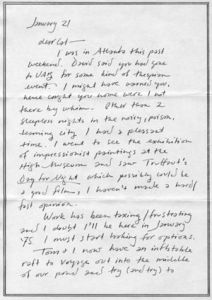 January 21
dear Cat –
I was in Atlanta this past
weekend. David said you had gone
to for some kind of thespian
event. I might have warned you,
hence caught you home were I not
there by whim. Other than 2
sleepless nights in the noisy, prison,
learning city I had a pleasant
time. I went to see the exhibition
of impressionist paintings at the
High Museum and saw Truffaut's
Day for Night which possibly could be
a good film; I haven't made a hard/
fast opinion.
Work has been taxing/frustrating
and I doubt I'll be here in January
'75. I must start looking for options.
Tom & I now have an inflatable
raft to voyage out into the middle
of our pond and try (and try) to